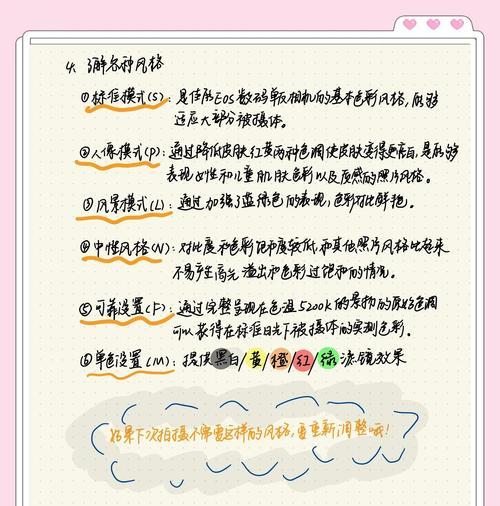 4. 了解各种风格
①标准模式(S): 是佳能EOS数码单反相机的基本色彩风格,能够
适应大部分被摄体。
②人像模式(P): 通过降低皮肤红黄两种色调使皮肤变得更白,是能够
表现女性和儿童肌肤色彩以及质感的照片风格。
③风景模式(L): 通过加强了蓝绿色的表现,色彩对比鲜艳。
④中性风格(N): 对比度和色彩饱和度较低,和其他照片风格比起来
不易产生高光溢出和色彩过饱和的情况。
⑤可靠设置(F): 通过完整呈现在色温5200k的景物的原始色调
可以获得在标准日光下被摄体的实测色彩。
⑥单色设置(M): 提供黑白/黄/橙/红/绿滤镜效果
如果下次拍摄不需要这样的风格,要重新调整哦!